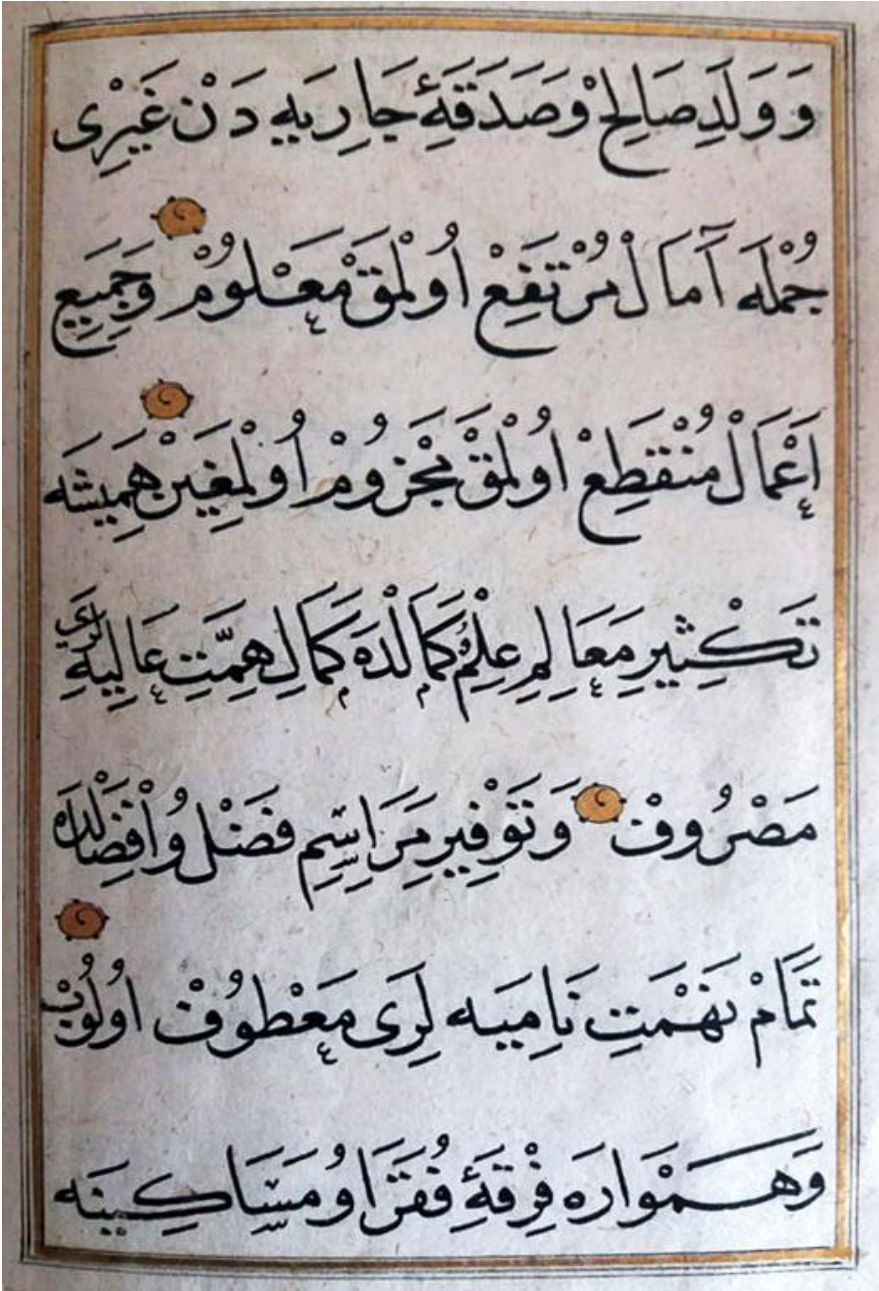 وَوَلَدِ صَالِحْ وَصَدَقَۀِ جَارِيَه دَنْ غَيْرِى
جُمْلَه آمَالْ مُرْتَفِعْ اُولْمَقْ مَعْلُومْ وَجَمِيعِ
اَعْمَالْ مُنْقَطِعْ اُولْمَقْ مَجْزُومْ اُولْمَغِينْ هَمِيشَه
تَكْثِيرِ مَعَالِمِ عِلْمُ كَمَالْدَه كَمَالِ هِمَّتِ عَالِيَه لَرِى
مَصْرُوفْ وَتَوْفِيرِ مَرَاسِمِ فَضْل وُاِفْضَالْدَه
تَمَامْ نَهْمَتِ نَامِيَه لَرِى مَعْطُوفْ اُولُوبْ
وَهَمْوَارَه فِرْقَۀِ فُقَرَا وُ مَسَاكِينَه